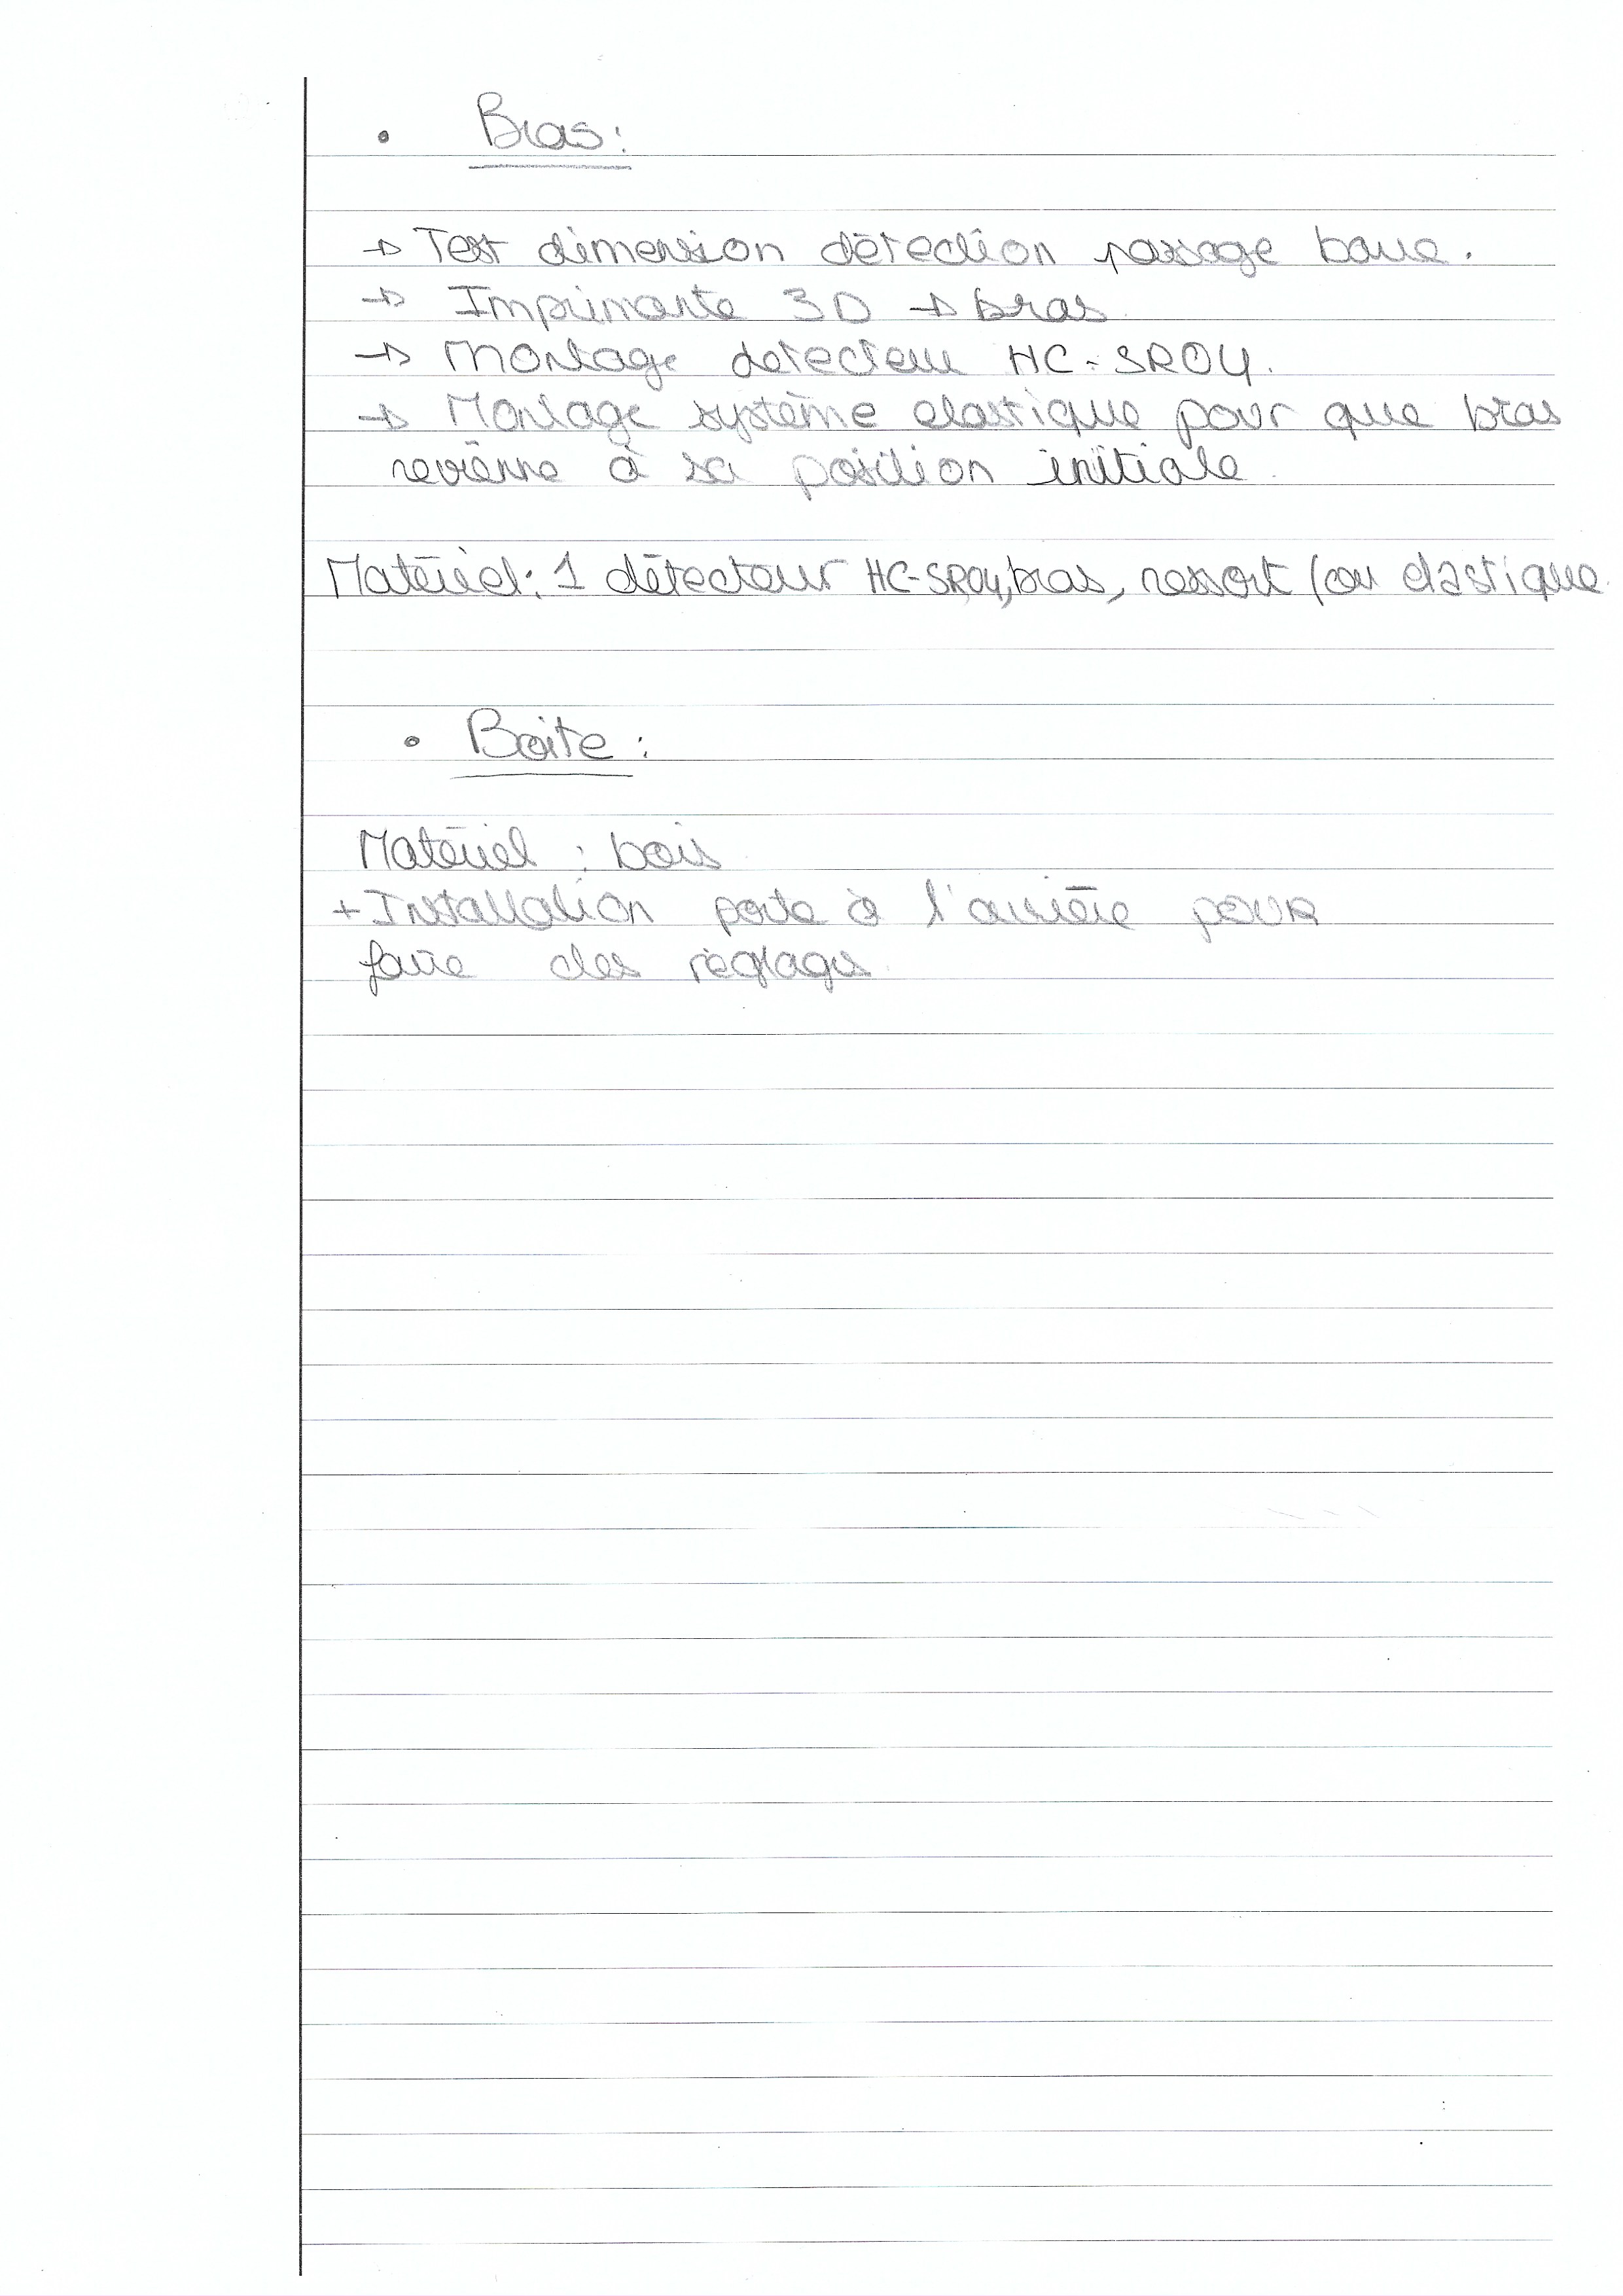 • Bras :
→ Test dimension détection passage balle.
→ Imprimante 3D → bras
→ Montage detecteur HC-SR04.
→ Montage système elastique pour que bras
revienne à sa position initiale
Matériel : 1 détecteur HC-SR04, bras, ressort (ou elastique
• Boîte :
Matériel : bois
+ Installation porte à l'arrière pour
faire des réglages